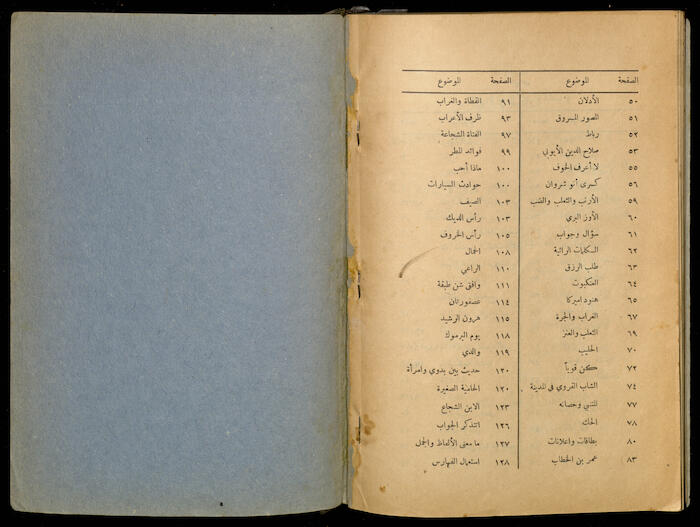 الصفحة الموضوع
٥٠ الأذلان
٥١ المصور المسروق
٥٢ رباط
٥٣ صلاح الدين الأيوبي
٥٥ لا أعرف الخوف
٥٦ كسرى أنو شروان
٥٩ الأرنب والثعلب والضب
٦٠ الأوز البري
٦١ سؤال وجواب
٦٢ السكايات الرائية
٦٣ طلب الرزق
٦٤ العنكبوت
٦٥ هنود اميركا
٦٧ الغراب والجرة
٦٩ الثعلب والعنز
٧٠ الحليب
٧٢ كن قوياً
٧٤ الشاب القروي في المدينة
٧٧ المتنبي وحصانه
٧٨ الحك
٨٠ بطاقات واعلانات
٨٣ عمر بن الخطاب
الصفحة الموضوع
٩١ القطاة والغراب
٩٣ ظرف الأعراب
٩٧ الفتاة الشجاعة
٩٩ فوائد المطر
١٠٠ ماذا أحب
١٠٠ حوادث السيارات
١٠٣ الصيف
١٠٣ رأس الديك
١٠٥ رأس الخروف
١٠٨ الجمال
١١٠ الراعي
١١١ وافق شن طبقة
١١٤ عصفورتان
١١٥ هرون الرشيد
١١٨ يوم اليرموك
١١٩ والدي
١٢٠ حديث بين بدوي وامرأة
١٢٠ الحامية الصغيرة
١٢٣ الابن الشجاع
١٢٦ اتتذكر الجواب
١٢٧ ما معنى الألفاظ والجمل
١٢٨ استعمال الفهارس